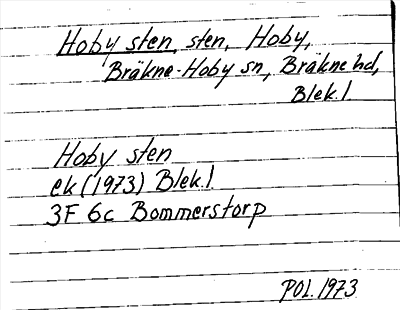 Hoby sten, sten, Hoby,
Bräkne-Hoby sn, Bräkne hd,
Blek. l
Hoby sten
ek (1973) Blek. l.
3F 6c Bommerstorp
POL. 1973